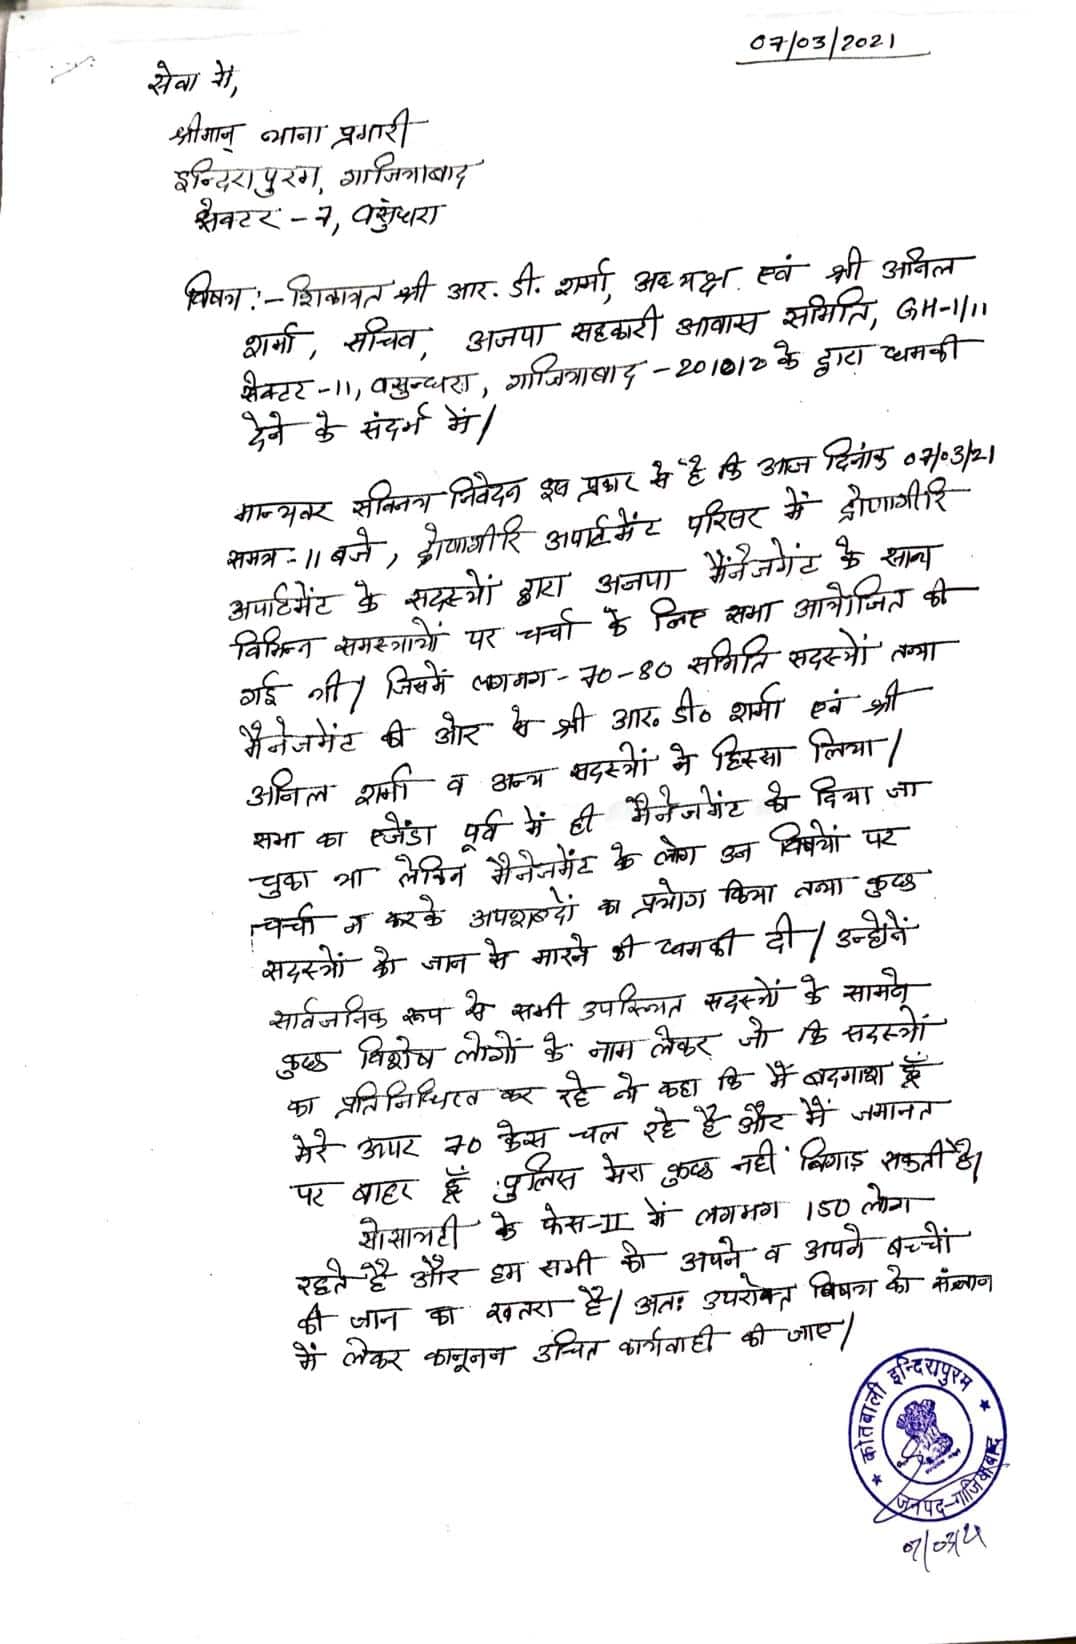 07/03/2021
सेवा में,
श्रीमान् थाना प्रभारी
इन्दिरापुरम, गाजियाबाद
सेक्टर - 7, वसुंधरा
विषय :- शिकायत श्री आर. डी. शर्मा, अध्यक्ष एवं श्री अनिल
शर्मा, सचिव, अजपा सहकारी आवास समिति, GH-1/11
सेक्टर -11, वसुन्धरा, गाजियाबाद - 201012 के द्वारा धमकी
देने के संदर्भ में।
मान्यवर सविनय निवेदन इस प्रकार से है कि आज दिनांक 07/03/21
समय :- 11 बजे, द्रोणागीरि अपार्टमेंट परिसर में द्रोणागीरि
अपार्टमेंट के सदस्यों द्वारा अजपा मैनेजमेंट के साथ
विभिन्न समस्याओं पर चर्चा के लिए सभा आयोजित की
गई थी। जिसमें लगभग - 70-80 समिति सदस्यों तथा
मैनेजमेंट की ओर से श्री आर० डी० शर्मा एवं श्री
अनिल शर्मा व अन्य सदस्यों ने हिस्सा लिया।
सभा का एजेंडा पूर्व में ही मैनेजमेंट को दिया जा
चुका था लेकिन मैनेजमेंट के लोग उन विषयों पर
चर्चा न करके अपशब्दों का प्रयोग किया तथा कुछ
सदस्यों को जान से मारने की धमकी दी। उन्होंनें
सार्वजनिक रूप से सभी उपस्थित सदस्यों के सामने
कुछ विशेष लोगों के नाम लेकर जो कि सदस्यों
का प्रतिनिधित्व कर रहे थे कहा कि मैं बदमाश हूँ
मेरे ऊपर 70 केस चल रहे है और मैं जमानत
पर बाहर हूँ पुलिस मेरा कुछ नहीं बिगाड़ सकती है।
सोसायटी के फेस-II में लगभग 150 लोग
रहते है और हम सभी को अपने व अपने बच्चों
की जान का खतरा है। अतः उपरोक्त विषय को संज्ञान
में लेकर कानूनन उचित कार्यवाही की जाए।
कोतवाली इन्दिरापुरम
जनपद-गाजियाबाद